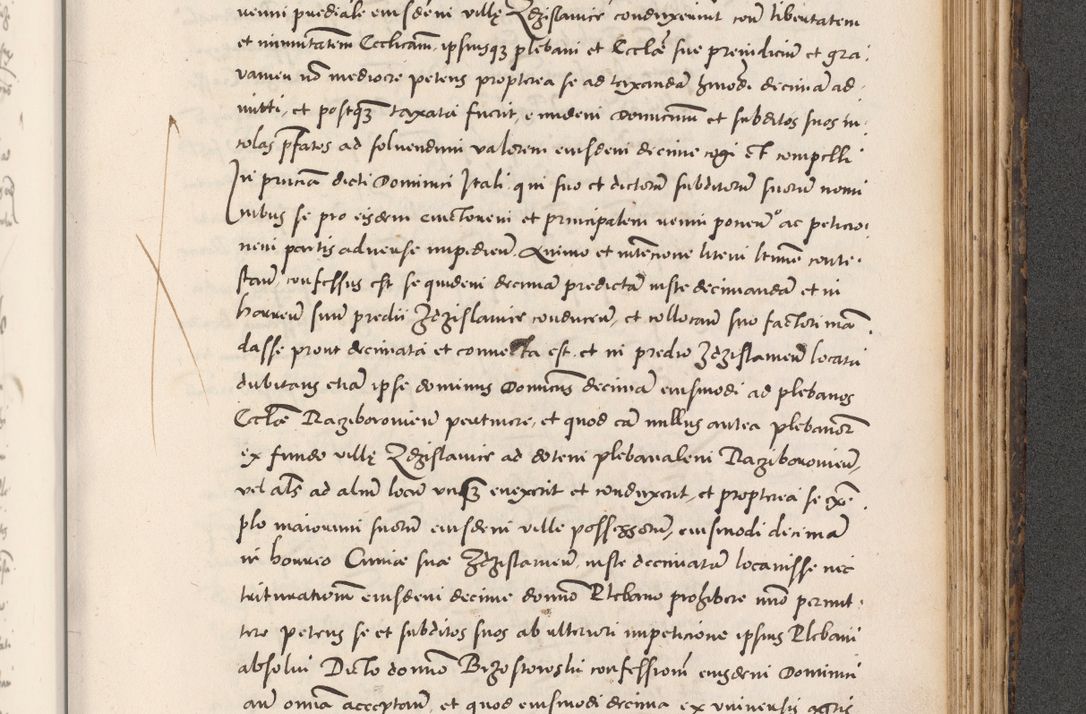 nemi prediale eiusdem villę Zdzislavice conduxerint con libertatem
et immunitatem Ecclicam, ipsiusqз plebani et Ecclae sue preiudiciu et gra,
vamen no mediocre petens propterea se ad taxanda hmodi decima ad,
mitti, et postqз taxata fuerit, eundem Dominum et subditos suos in,
colas pfatos ad solvendum valorem eiusdem decime cogi et compelli
In pricia dicti Dominici Itali, qui suo et dictoru subditoru suoru nomi
nibus se pro eisdem evictorem et principalem nemi poneru ac peticio,
nem partis adverse impedieu. Quimo et intencione litem litime conte,
stau, confessus est se quidem decima predicta iuste decimanda et in
horreu suu predii Zdzislavice conduceru, et collocau suo factori man,
dasse prout decimata et convecta est, et in predio Zdzislavien locata
dubitans etia ipse dominus Dominicus decima eiusmodi ad plebanos
Ecclae Raciboroviens pertinere, et quod ea nullus antea plebanor
ex fundo villę Zdzislavice ad dotem plebanalem Raciboroviens,
vel als ad aliu locu unqз evexerit et conduxerit, et propterea se exe
plo maiorum suoru eiusdem ville possessoru, eiusmodi decima
in horreo Curiae suae Zdzislavien, iuste decimata locavisse nec
trituratiom eiusdem decime domo Plebano prohibere imo permit,
tere petens se et subditos suos ab ulteriori impeticione ipsius Plebani
absolvi Dicto domo Bizostowski confessione eiusdem Dominici
au omia acceptau, et quod eiusmodi decima ex universis agris